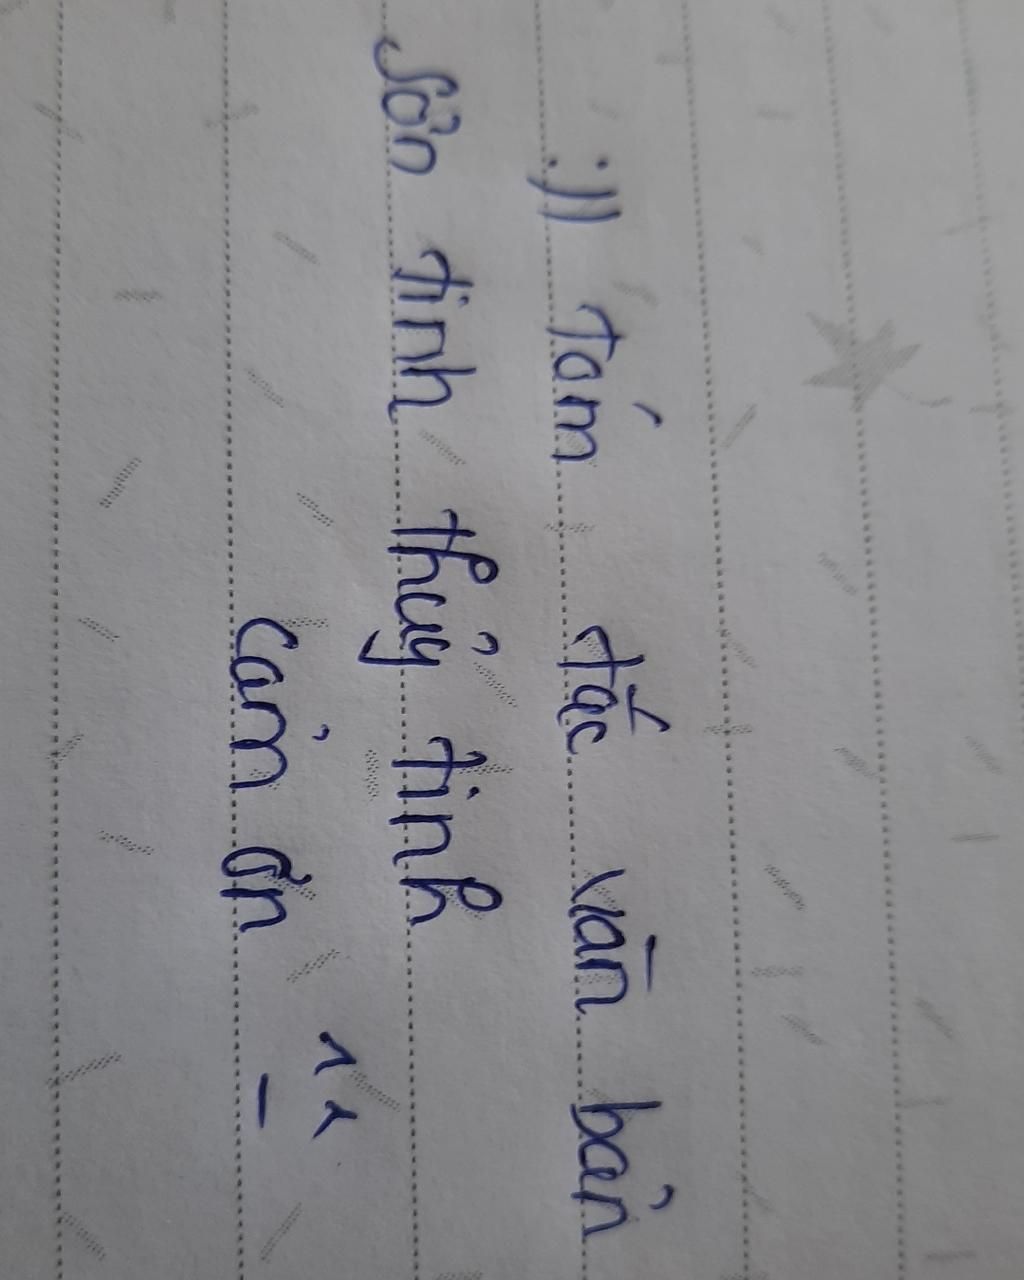 :)) Tóm tắc văn bản
Sơn tinh thủy tinh
cảm ơn ^_^